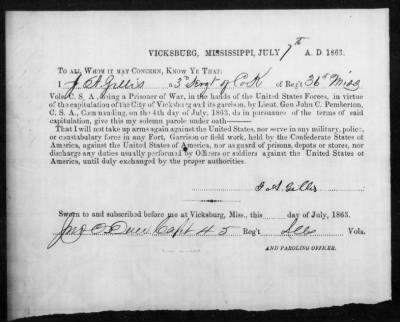 VICKSBURG, MISSISSIPPI, JULY 7th A. D. 1863.
TO ALL WHOM IT MAY CONCERN, KNOW YE THAT:
I J. A. Gillis a 3d Sergt of Co K of Reg't 36th Miss
Vols. C. S. A., being a Prisoner of War, in the hands of the United States Forces, in virtue
of the capitulation of the City of Vicksburg and its garrison, by Lieut. Gen John C. Pemberton,
C. S. A., Commanding, on the 4th day of July, 1863, do in pursuance of the terms of said
capitulation, give this my solemn parole under oath——
That I will not take up arms again against the United States, nor serve in any military, police,
or constabulary force in any Fort, Garrison or field work, held by the Confederate States of
America, against the United States of America, nor as guard of prisons, depots or stores, nor
discharge any duties usually performed by Officers or soldiers against the United States of
America, until duly exchanged by the proper authorities.
J. A. Gillis
Sworn to and subscribed before me at Vicksburg, Miss., this day of July, 1863.
Jno O Duer Capt 45 Reg't Ills Vols.
AND PAROLING OFFICER.